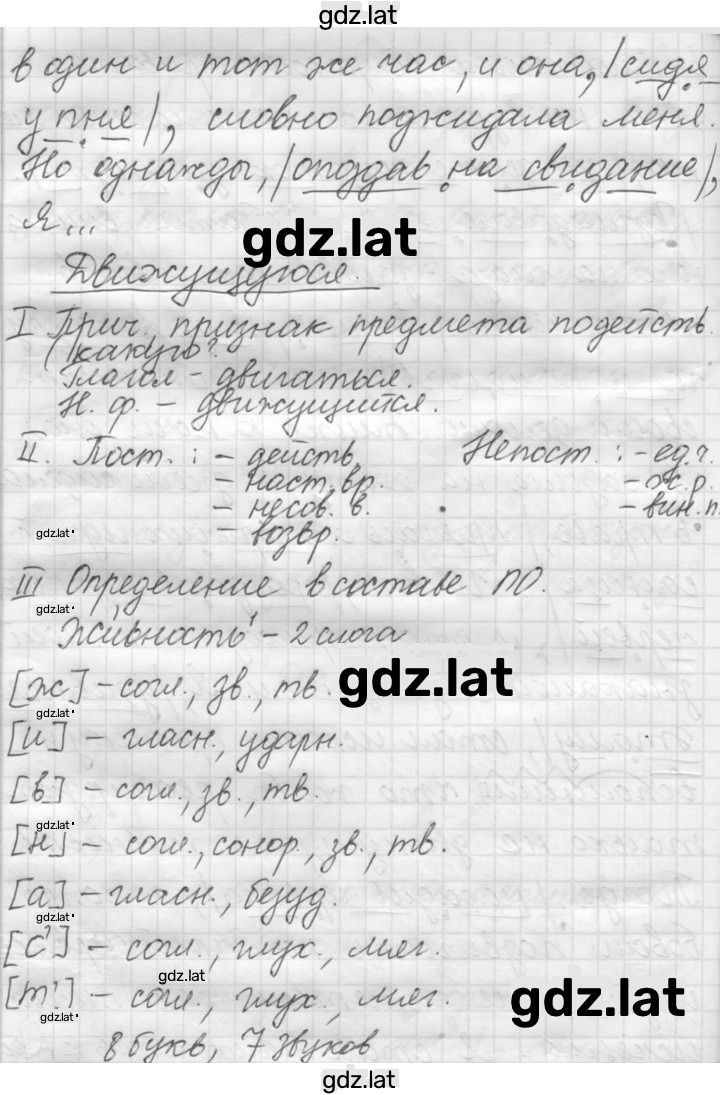 gdz.lat
в один и тот же час, и она, |сидя
у пня|, словно поджидала меня.
Но однажды, |опоздав на свидание|,
я...
gdz.lat
Движущуюся.
I Прич., признак предмета по действ.
(какую?
Глагол - двигаться.
Н. ф. - движущийся.
II. Пост. : - действ Непост. : - ед.ч.
- наст. вр. - ж.р.
- несов. в. - вин.п.
gdz.lat - возвр.
III Определение в составе ПО.
gdz.lat
Живность - 2 слога
[ж] - согл., зв., тв.
gdz.lat
gdz.lat
[и] - гласн., ударн.
[в] - согл., зв., тв.
gdz.lat
[н] - согл., сонор., зв., тв.
[а] - гласн., безуд.
gdz.lat
[с'] - согл., глух., мяг.
gdz.lat
[т'] - согл., глух., мяг.
gdz.lat
gdz.lat
8 букв, 7 звуков
gdz.lat